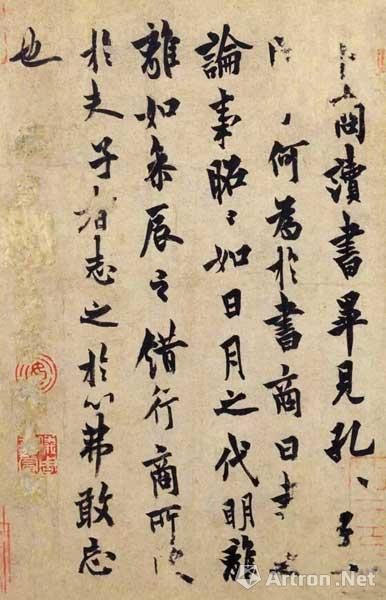 卜商讀書畢見孔〻子〻
何爲於書商曰書
論事昭〻如日月之代明離
離如參辰之錯行商所受
於夫子者志之於心弗敢忘
也
Artron.Net